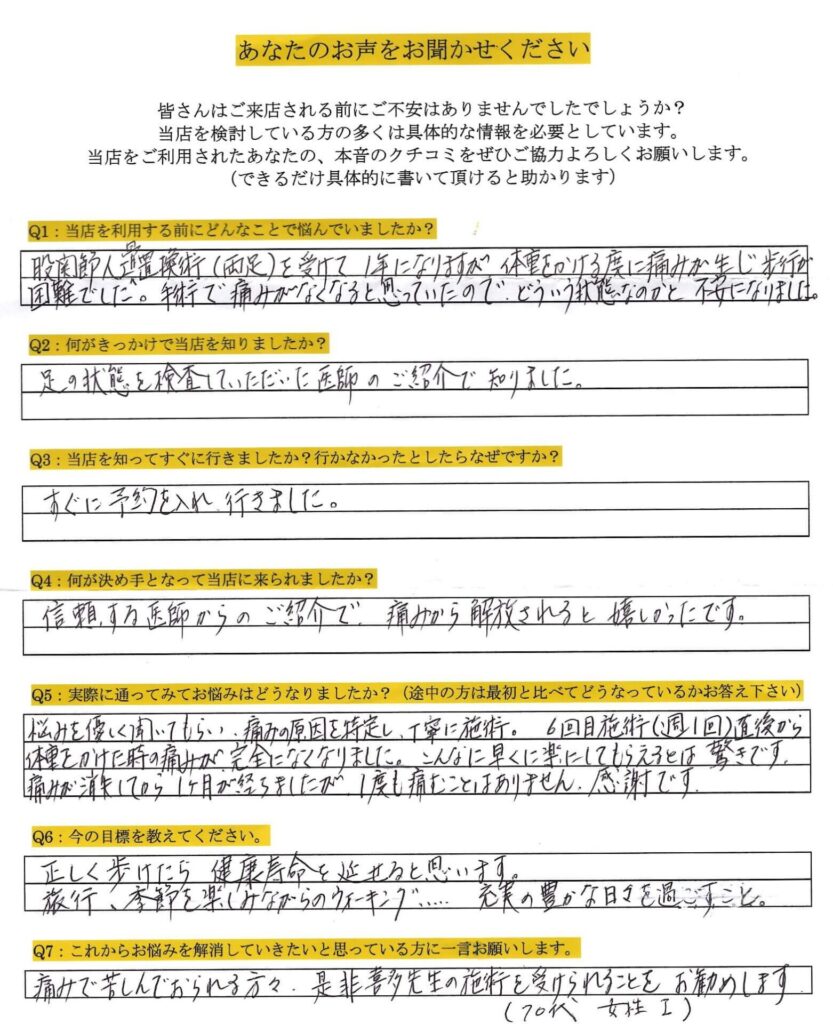 あなたのお声をお聞かせください
皆さんはご来店される前にご不安はありませんでしたでしょうか?
当店を検討している方の多くは具体的な情報を必要としています。
当店をご利用されたあなたの、本音のクチコミをぜひご協力よろしくお願いします。
(できるだけ具体的に書いて頂けると助かります)
Q1:当店を利用する前にどんなことで悩んでいましたか?
股関節人工骨置換術(両足)を受けて 1年になりますが 体重をかける度に痛みが生じ歩行が
困難でした。手術で痛みがなくなると思っていたので、どういう状態なのかと 不安になりました。
Q2:何がきっかけで当店を知りましたか?
足の状態を検査していただいた医師のご紹介で知りました。
Q3:当店を知ってすぐに行きましたか?行かなかったとしたらなぜですか?
すぐに予約を入れ、行きました。
Q4:何が決め手となって当店に来られましたか?
信頼する医師からのご紹介で、痛みから解放されると嬉しかったです。
Q5:実際に通ってみてお悩みはどうなりましたか?(途中の方は最初と比べてどうなっているかお答え下さい)
悩みを優しく聞いてもらい、痛みの原因を特定し、丁寧に施術。 6回目施術(週1回)直後から
体重をかけた時の痛みが完全になくなりました。こんなに早くに楽にしてもらえるとは 驚きです。
痛みが消失してから1ヶ月が経ちましたが、1度も痛むことはありません。感謝です。
Q6:今の目標を教えてください。
正しく歩けたら 健康寿命を延せると思います。
旅行、季節を楽しみながらのウォーキング..... 充実の豊かな日々を過ごすこと。
Q7:これからお悩みを解消していきたいと思っている方に一言お願いします。
痛みで苦しんでおられる方々、是非喜多先生の施術を受けられることを お勧めします
(70代 女性 I)